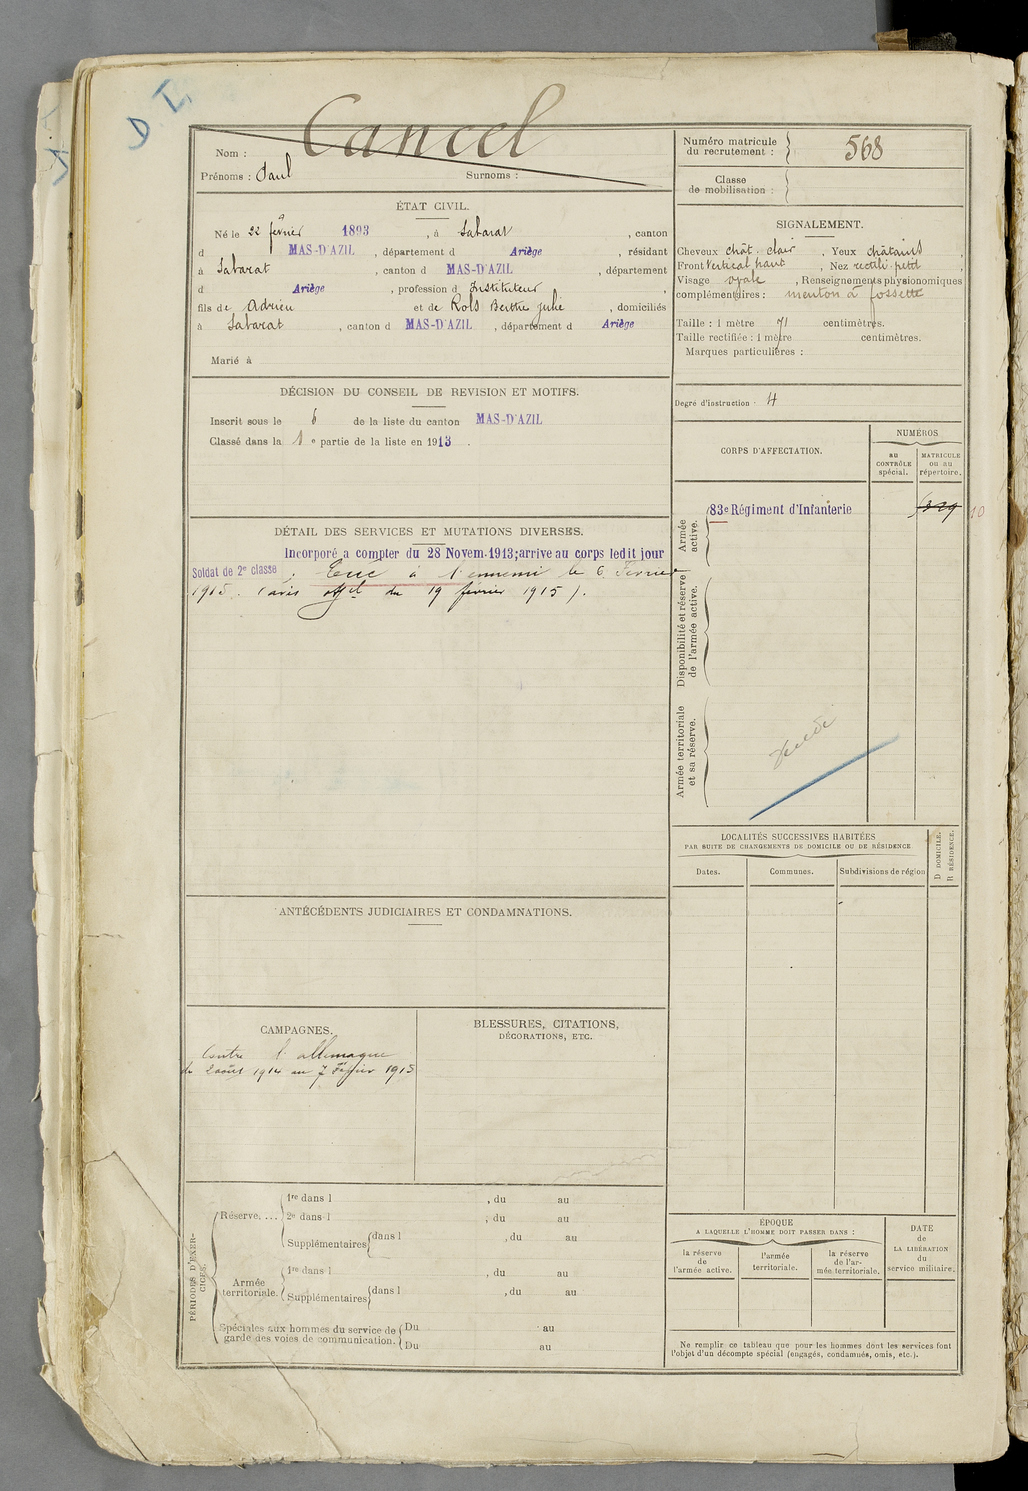 D I.
Nom : Cancel
Prénoms : Paul Surnoms :
Numéro matricule
du recrutement : 568
Classe
de mobilisation :
ÉTAT CIVIL.
Né le 22 février 1893, à Sabarat, canton
d MAS-D'AZIL, département d Ariège, résidant
à Sabarat, canton d MAS-D'AZIL, département
d Ariège, profession d Instituteur,
fils de Adrien et de Rols Berthe Julie, domiciliés
à Sabarat, canton d MAS-D'AZIL, département d Ariège
Marié à
SIGNALEMENT.
Cheveux chât. clair, Yeux châtains,
Front Vertical haut, Nez rectili. petit,
Visage ovale, Renseignements physionomiques
complémentaires : menton à fossette
Taille : 1 mètre 71 centimètres.
Taille rectifiée : 1 mètre centimètres.
Marques particulières :
Degré d'instruction 4
DÉCISION DU CONSEIL DE REVISION ET MOTIFS.
Inscrit sous le 6 de la liste du canton MAS-D'AZIL
Classé dans la 1e partie de la liste en 1913.
CORPS D'AFFECTATION.
NUMÉROS
au
CONTRÔLE
spécial.
MATRICULE
ou au
répertoire.
Armée
active.
83e Régiment d'Infanterie
10
Disponibilité et réserve
de l'armée active.
Armée territoriale
et sa réserve.
DÉTAIL DES SERVICES ET MUTATIONS DIVERSES.
Incorporé a compter du 28 Novem. 1913; arrive au corps ledit jour
Soldat de 2e classe ; Tué à l'ennemi le 6 Février
1915. (avis offel du 19 février 1915).
LOCALITÉS SUCCESSIVES HABITÉES
PAR SUITE DE CHANGEMENTS DE DOMICILE OU DE RÉSIDENCE
Dates.
Communes.
Subdivisions de région
D DOMICILE.
R RÉSIDENCE.
ANTÉCÉDENTS JUDICIAIRES ET CONDAMNATIONS.
CAMPAGNES.
Contre l'allemagne
du 2 août 1914 au 7 Février 1915
BLESSURES, CITATIONS,
DÉCORATIONS, ETC.
PÉRIODES D'EXER-
CICES.
Réserve....
1re dans l , du au
2e dans l , du au
Supplémentaires dans l , du au
Armée
territoriale.
1re dans l , du au
Supplémentaires dans l , du au
Spéciales aux hommes du service de
garde des voies de communication.
Du au
Du au
ÉPOQUE
A LAQUELLE L'HOMME DOIT PASSER DANS :
la réserve
de
l'armée active.
l'armée
territoriale.
la réserve
de l'ar-
mée territoriale.
DATE
de
LA LIBÉRATION
du
service militaire.
Ne remplir ce tableau que pour les hommes dont les services font
l'objet d'un décompte spécial (engagés, condamnés, omis, etc.).